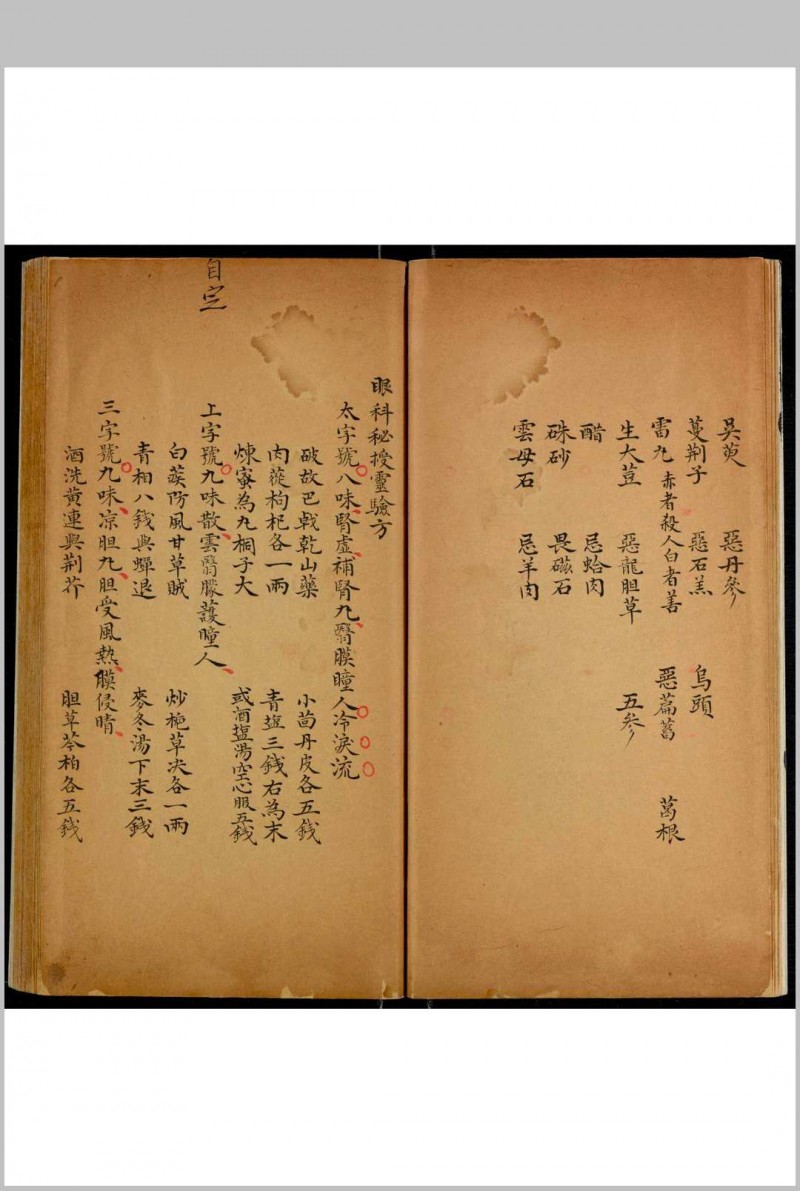 吳萸 惡丹參
蔓荆子 惡石羔 烏頭
雷九 赤者殺人白者善 惡萹蓄 葛根
生大荳 惡龍胆草 五參
醋 忌蛤肉
硃砂 畏磁石
雲母石 忌羊肉
眼科秘授靈驗方
太字號八味腎虛補腎九醫膜瞳人冷淚流
破故巴戟乾山藥 小茴丹皮各五錢
肉蓯枸杞各一兩 青塩三錢右為末
煉蜜為九桐子大 或酒塩湯空心服五錢
上字號九味散雲醫朦護瞳人
白蒺防風甘草賊 炒栀草决各一兩
青相八錢與蟬退 麥冬湯下末三錢
三字號九味凉胆九胆受風熱膜侵晴
酒洗黃連與荆芥 胆草芩柏各五錢
自定